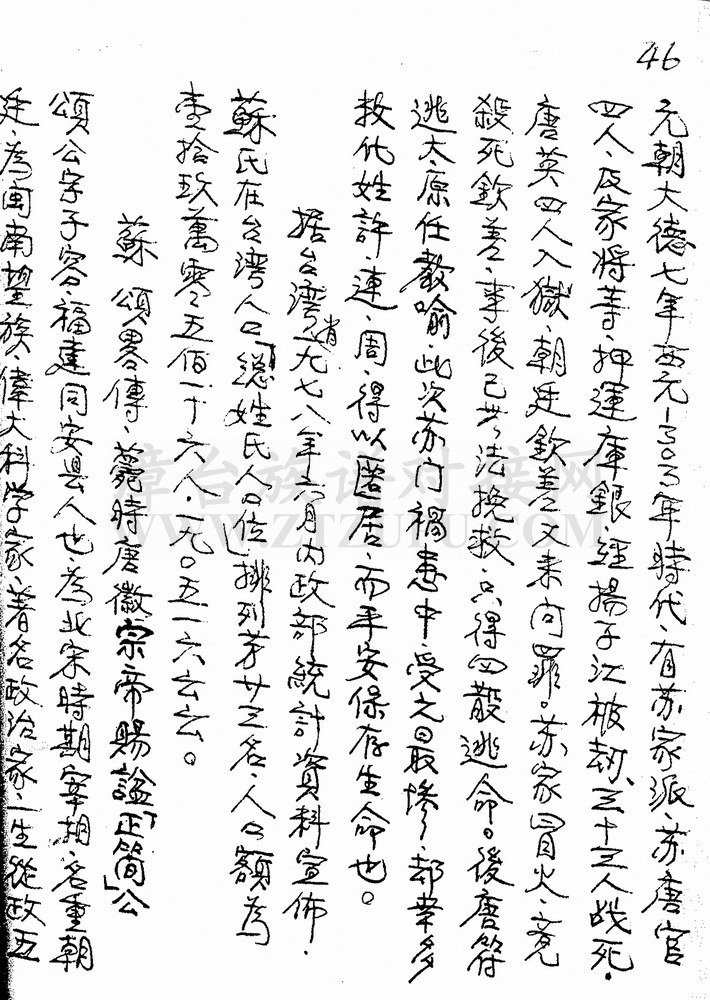 46
元朝大德七年西元一三〇三年時代、有苏家派、苏唐官
四人、及家将等、押運庫銀、經揚子江被刼、三十三人战死.
唐英四人入獄、朝廷欽差又来问罪。苏家冒火、竟
殺死欽差、事後已无法挽救、只得四散逃命。後唐符
逃太原任教喻、此次苏门禍患中、受之最惨、却幸多
找代姓許、連、周、得以匿居、而平安保存生命也。
据台湾省一九七八年六月内政部統計資料宣佈.
蘇氏在台湾人口「總姓氏人口位」排列第廿三名、人口額為
壹拾玖萬零五佰一十六人.一九〇五一六云云。
蘇頌畧傳、薨時唐徽宗帝賜謚「正简」公
頌公字子容福建同安县人也為北宋時期宰相、名重朝
廷、為闽南望族、偉大科学家、著名政治家、一生從政五
漳台族谱对接网
WWW.ZTZUPU.COM